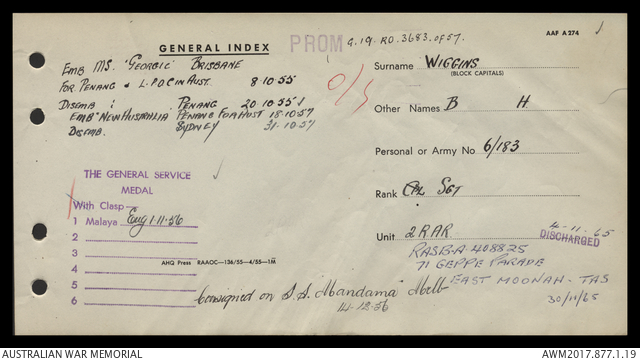 GENERAL INDEX
PROM
G.19. RO. 3683. of 57.
AAF A274
EMB MS. 'GEORGIC' BRISBANE
FOR PENANG & L.P.O.C in AUST. 8·10·55
DISEMB : PENANG 20·10·55
EMB 'NEW AUSTRALIA' PENANG FOR AUST 18·10·57
DISEMB. SYDNEY 31·10·57
O/S
Surname WIGGINS
(BLOCK CAPITALS)
Other Names B H
Personal or Army No 6/183
Rank CPL SGT
Unit 2 RAR.
4-11-65
DISCHARGED
RASBA 408825
71 GEPPE PARADE
EAST MOONAH - TAS
30/11/65
THE GENERAL SERVICE
MEDAL
With Clasp—
1 Malaya 1·11·56
2
3
4
5
6
AHQ Press RAAOC—136/55—4/55—1M
Consigned on S.S. "Mandama" Melb
14-12-56
AUSTRALIAN WAR MEMORIAL
AWM2017.877.1.19